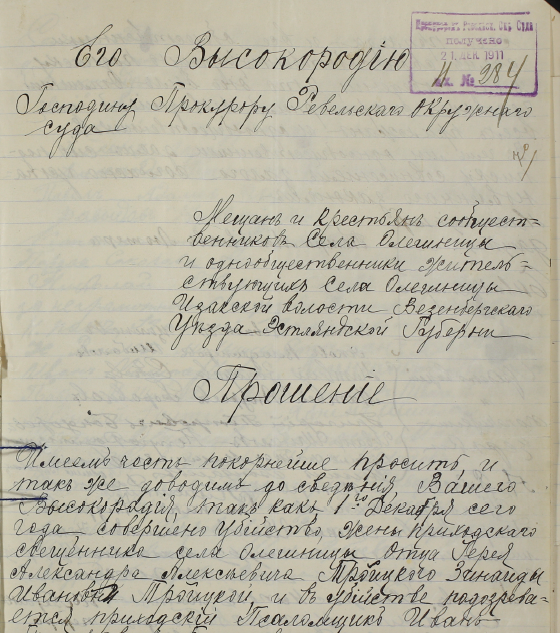 Прокурор Ревельск. Окр. Суда
получено
21 ДЕК. 1911
Вх. № 284
Его Высокородію
Господину Прокурору Ревельскаго Окружнаго
суда
Мещанъ и крестьянъ сообщест-
венниковъ Села Олешницы
и однообщественники житель=
ствующихъ Села Олешницы
Изакской волости Везенбергскаго
Уѣзда Эстляндской Губерни
Прошеніе
Имеемъ честь покорнейше просить, и
такъ же доводимъ до сведѣния Вашего
Высокородія, такъ какъ 1го Декабря сего
года совершено убійство, жены приходскаго
свещенника села Олешницы Отца Iерея
Александра Алексѣевича Троицкаго Зинаиды
Ивановны Троицкой, и въ убійстве подозрева-
ется приходскій Псаломщикъ Иванъ